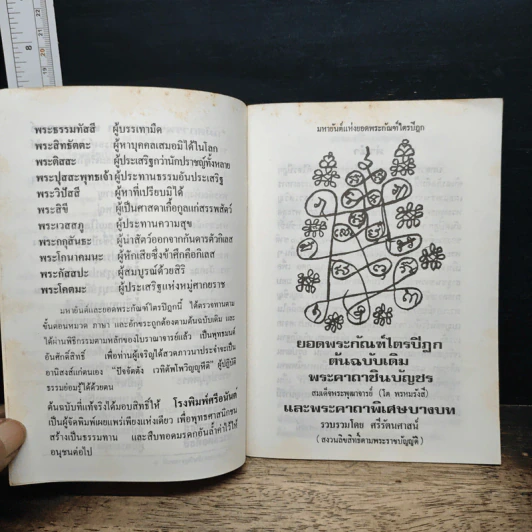 พระธรรมทัสสี ผู้บรรเทามืด
พระสิทธัตตะ ผู้หาบุคคลเสมอมิได้ในโลก
พระติสสะ ผู้ประเสริฐกว่านักปราชญ์ทั้งหลาย
พระปุสสะพุทธเจ้า ผู้ประทานธรรมอันประเสริฐ
พระวิปัสสี ผู้หาที่เปรียบมิได้
พระสิขี ผู้เป็นศาสดาเกื้อกูลแก่สรรพสัตว์
พระเวสสภู ผู้ประทานความสุข
พระกกุสันธะ ผู้นำสัตว์ออกจากกันดารตัวกิเลส
พระโกนาคมนะ ผู้หักเสียซึ่งข้าศึกคือกิเลส
พระกัสสปะ ผู้สมบูรณ์ด้วยสิริ
พระโคตมะ ผู้ประเสริฐแห่งหมู่ศากยราช
มหายันต์และยอดพระกัณฑ์ไตรปิฎกนี้ ได้ตรวจทานตาม
ขั้นตอนหมวด ภาษา และอักขระถูกต้องตามต้นฉบับเดิม และ
ได้ผ่านพิธีกรรมตามหลักของโบราณาจารย์แล้ว เป็นพุทธมนต์
อันศักดิ์สิทธิ์ เพื่อท่านผู้เจริญได้สวดภาวนาประจำจะเป็น
อานิสงส์แก่ตนเอง “ปัจจัตตัง เวทิตัพโพวิญญูหีติ” ผู้ปฏิบัติ
ธรรมย่อมรู้ได้ด้วยตน
ต้นฉบับที่แท้จริงได้มอบสิทธิ์ให้ โรงพิมพ์ศรีอนันต์
เป็นผู้จัดพิมพ์เผยแพร่เพียงแห่งเดียว เพื่อพุทธศาสนิกชน
สร้างเป็นธรรมทาน และสืบทอดมรดกอันล้ำค่าไว้ให้
อนุชนต่อไป
มหายันต์แห่งยอดพระกัณฑ์ไตรปิฎก
ยอดพระกัณฑ์ไตรปิฎก
ต้นฉบับเดิม
พระคาถาชินบัญชร
สมเด็จพระพุฒาจารย์ (โต พรหมรังสี)
และพระคาถาพิเศษบางบท
รวบรวมโดย ศรีรัตนศาสน์
(สงวนลิขสิทธิ์ตามพระราชบัญญัติ)